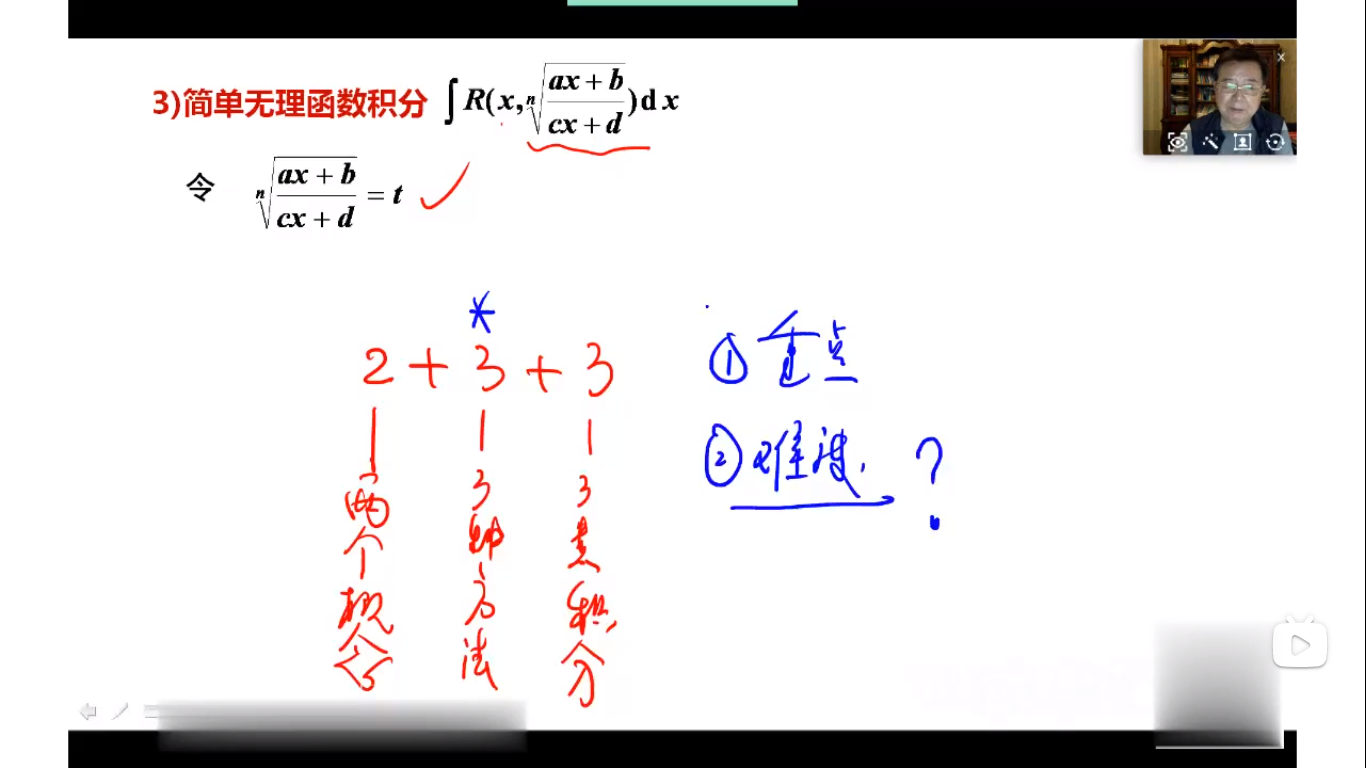 3)简单无理函数积分 ∫R(x, ⁿ√((ax+b)/(cx+d)))dx
令 ⁿ√((ax+b)/(cx+d)) = t ✓
*
2 + 3 + 3
两个概念
3种方法
3类积分
① 重点
② 难度. ?